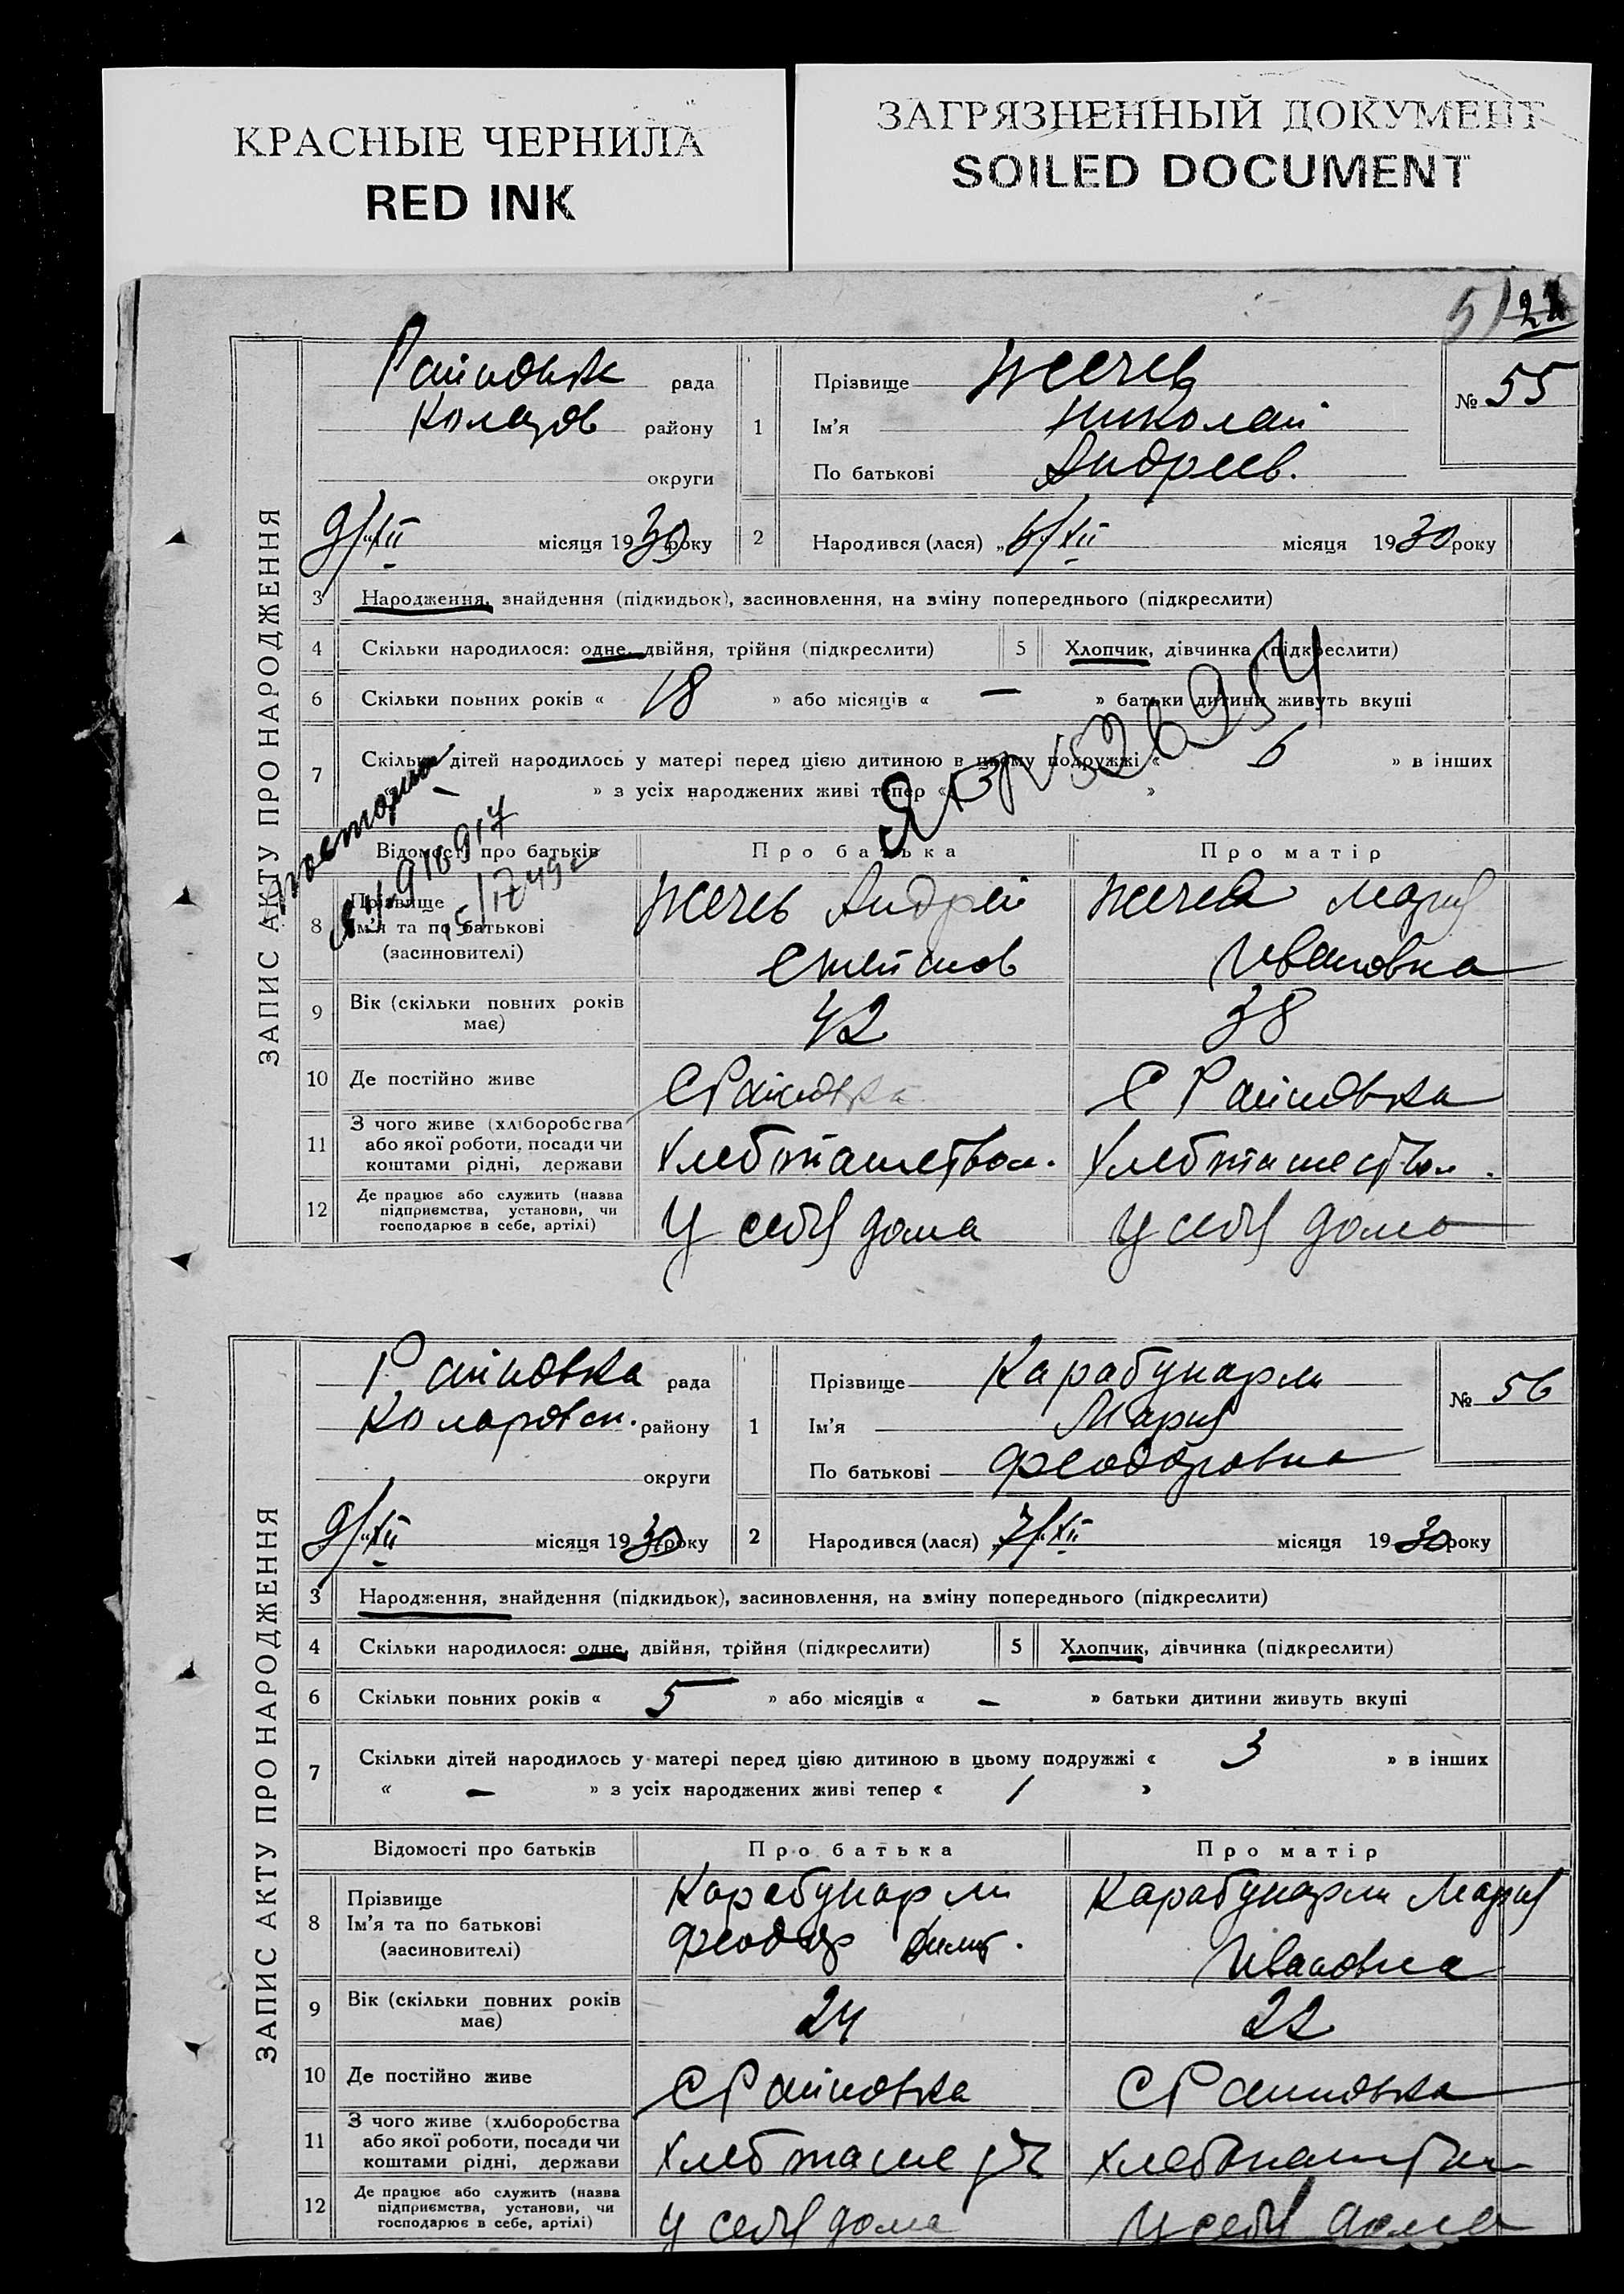 КРАСНЫЕ ЧЕРНИЛА
RED INK
ЗАГРЯЗНЕННЫЙ ДОКУМЕНТ
SOILED DOCUMENT
ЗАПИС АКТУ ПРО НАРОДЖЕННЯ
Райновка рада
району
округи
9/XII місяця 1930 року
1
Прізвище Жечев
Ім'я Николай
По батькові Андреев.
№ 55
2 Народився (лася) „6/XII місяця 1930 року
3 Народження, знайдення (підкидьок), засиновлення, на зміну попереднього (підкреслити)
4 Скільки народилося: одне, двійня, трійня (підкреслити) 5 Хлопчик, дівчинка (підкреслити)
6 Скільки повних років « 18 » або місяців « — » батьки дитини живуть вкупі
7 Скільки дітей народилось у матері перед цією дитиною в цьому подружжі « 6 » в інших
» з усіх народжених живі тепер « »
Відомості про батьків Про батька Про матір
8 Прізвище Ім'я та по батькові (засиновителі)
Жечев Андрей
Жечева Мария
Ивановна
9 Вік (скільки повних років має) 42 38
10 Де постійно живе С Райновка С Райновка
11 З чого живе (хліборобства або якої роботи, посади чи коштами рідні, держави
Хлебопашеством. Хлебопашеством.
12 Де працює або служить (назва підприємства, установи, чи господарює в себе, артілі)
У себя дома У себя дома
ЗАПИС АКТУ ПРО НАРОДЖЕННЯ
Райновка рада
Коларовск. району
округи
9/XII місяця 1930 року
1
Прізвище Карабунарли
Ім'я Мария
По батькові Феодоровна
№ 56
2 Народився (лася) „7/XII місяця 1930 року
3 Народження, знайдення (підкидьок), засиновлення, на зміну попереднього (підкреслити)
4 Скільки народилося: одне, двійня, трійня (підкреслити) 5 Хлопчик, дівчинка (підкреслити)
6 Скільки повних років « 5 » або місяців « — » батьки дитини живуть вкупі
7 Скільки дітей народилось у матері перед цією дитиною в цьому подружжі « 3 » в інших
« — » з усіх народжених живі тепер « 1 »
Відомості про батьків Про батька Про матір
8 Прізвище Ім'я та по батькові (засиновителі)
Карабунарли
Феодор
Карабунарли Мария
Ивановна
9 Вік (скільки повних років має) 24 22
10 Де постійно живе С Райновка С Райновка
11 З чого живе (хліборобства або якої роботи, посади чи коштами рідні, держави
12 Де працює або служить (назва підприємства, установи, чи господарює в себе, артілі)
У себя дома У себя дома